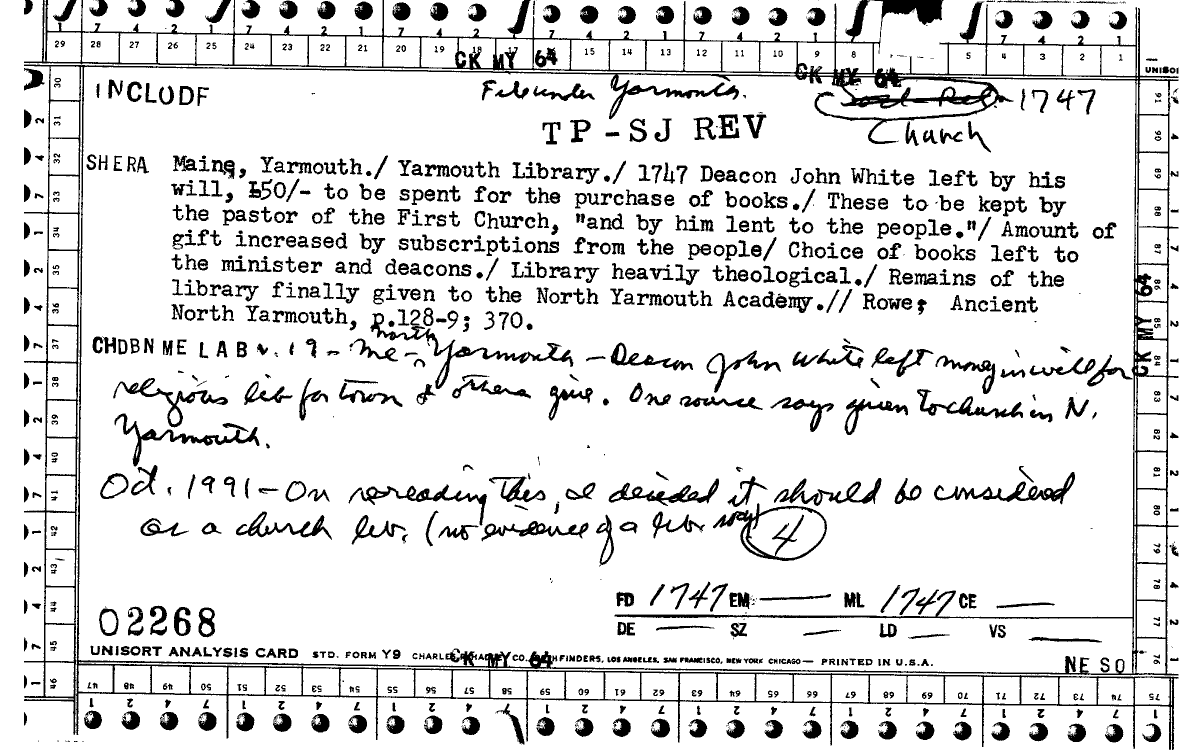 7 4 2 1 7 4 2 1 7 4 2 1 7 4 2 1 7 4 2 1
29 28 27 26 25 24 23 22 21 20 19 18 17 15 14 13 12 11 10 9 8 5 4 3 2 1
CK MY 64 CK MY 64
UNISOR
INCLUDE File under Yarmouth. Social Lib. 1747
TP-SJ REV Church
SHERA Maine, Yarmouth./ Yarmouth Library./ 1747 Deacon John White left by his
will, £50/- to be spent for the purchase of books./ These to be kept by
the pastor of the First Church, "and by him lent to the people."/ Amount of
gift increased by subscriptions from the people/ Choice of books left to
the minister and deacons./ Library heavily theological./ Remains of the
library finally given to the North Yarmouth Academy.// Rowe; Ancient
North Yarmouth, p.128-9; 370.
CHDBNMELAB v. 19 - Me - North Yarmouth - Deacon John White left money in will for
religious lib for town & others give. One source says given to church in N.
Yarmouth.
Oct. 1991 - On rereading this, I decided it should be considered
as a church lib. (no evidence of a lib. socy) 4
FD 1747 EM — ML 1747 CE —
02268
DE — SZ — LD — VS —
UNISORT ANALYSIS CARD STD. FORM Y9 CHARLES R. HADLEY CO. PATHFINDERS, LOS ANGELES, SAN FRANCISCO, NEW YORK CHICAGO — PRINTED IN U.S.A.
CK MY 64
NE SO
47 48 49 50 51 52 53 54 55 56 57 58 59 60 61 62 63 64 65 66 67 68 69 70 71 72 73 74 75